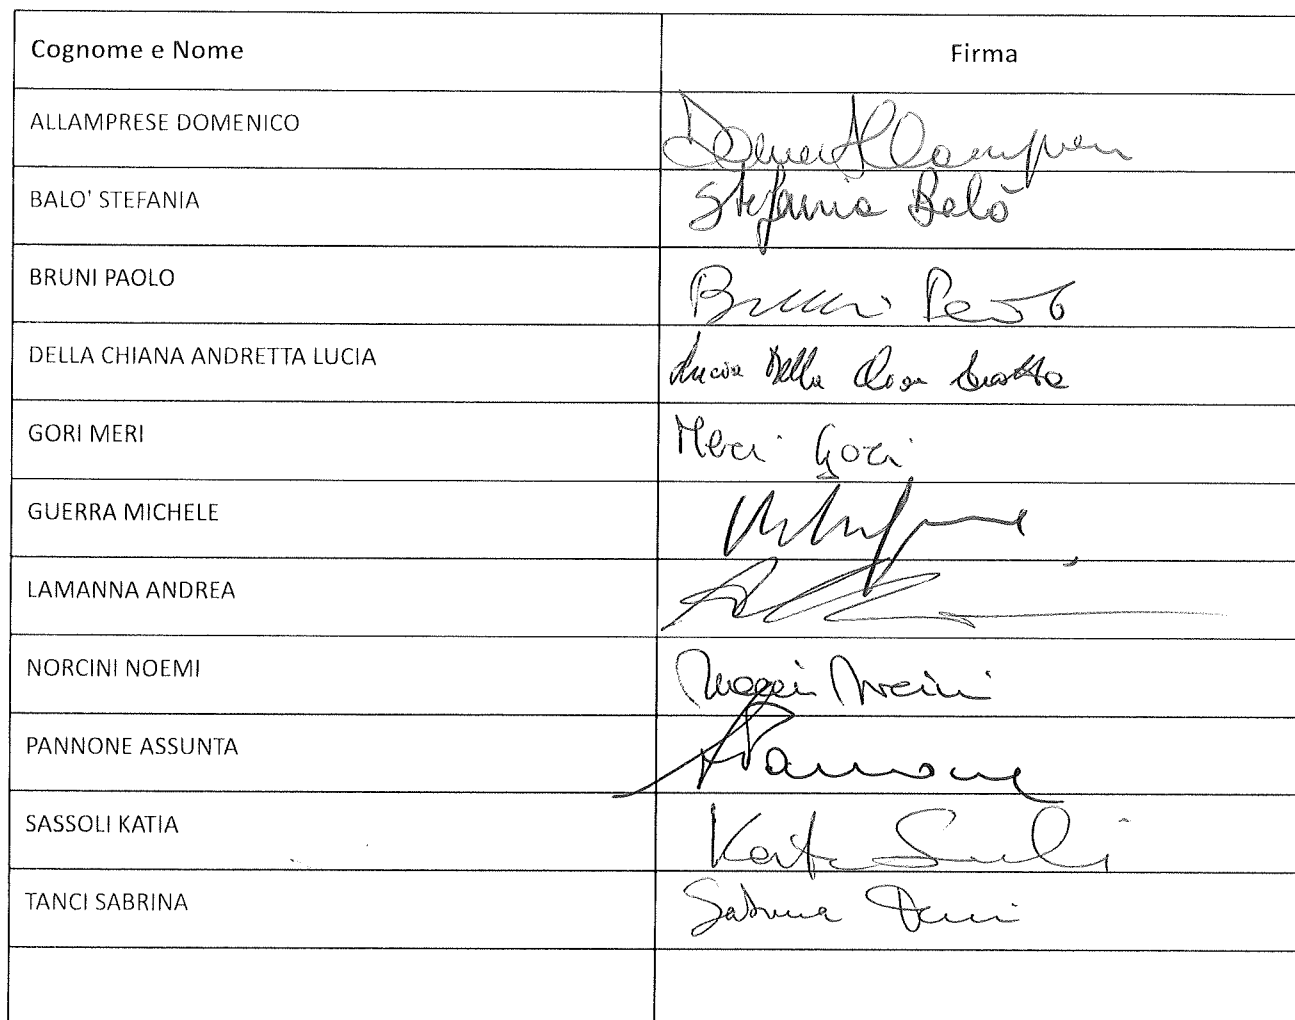 Cognome e Nome Firma
ALLAMPRESE DOMENICO
BALO' STEFANIA Stefania Balò
BRUNI PAOLO Bruni Paolo
DELLA CHIANA ANDRETTA LUCIA Lucia Della
GORI MERI Meri Gori
GUERRA MICHELE
LAMANNA ANDREA
NORCINI NOEMI
PANNONE ASSUNTA Pannone
SASSOLI KATIA Katia
TANCI SABRINA Sabrina Tanci